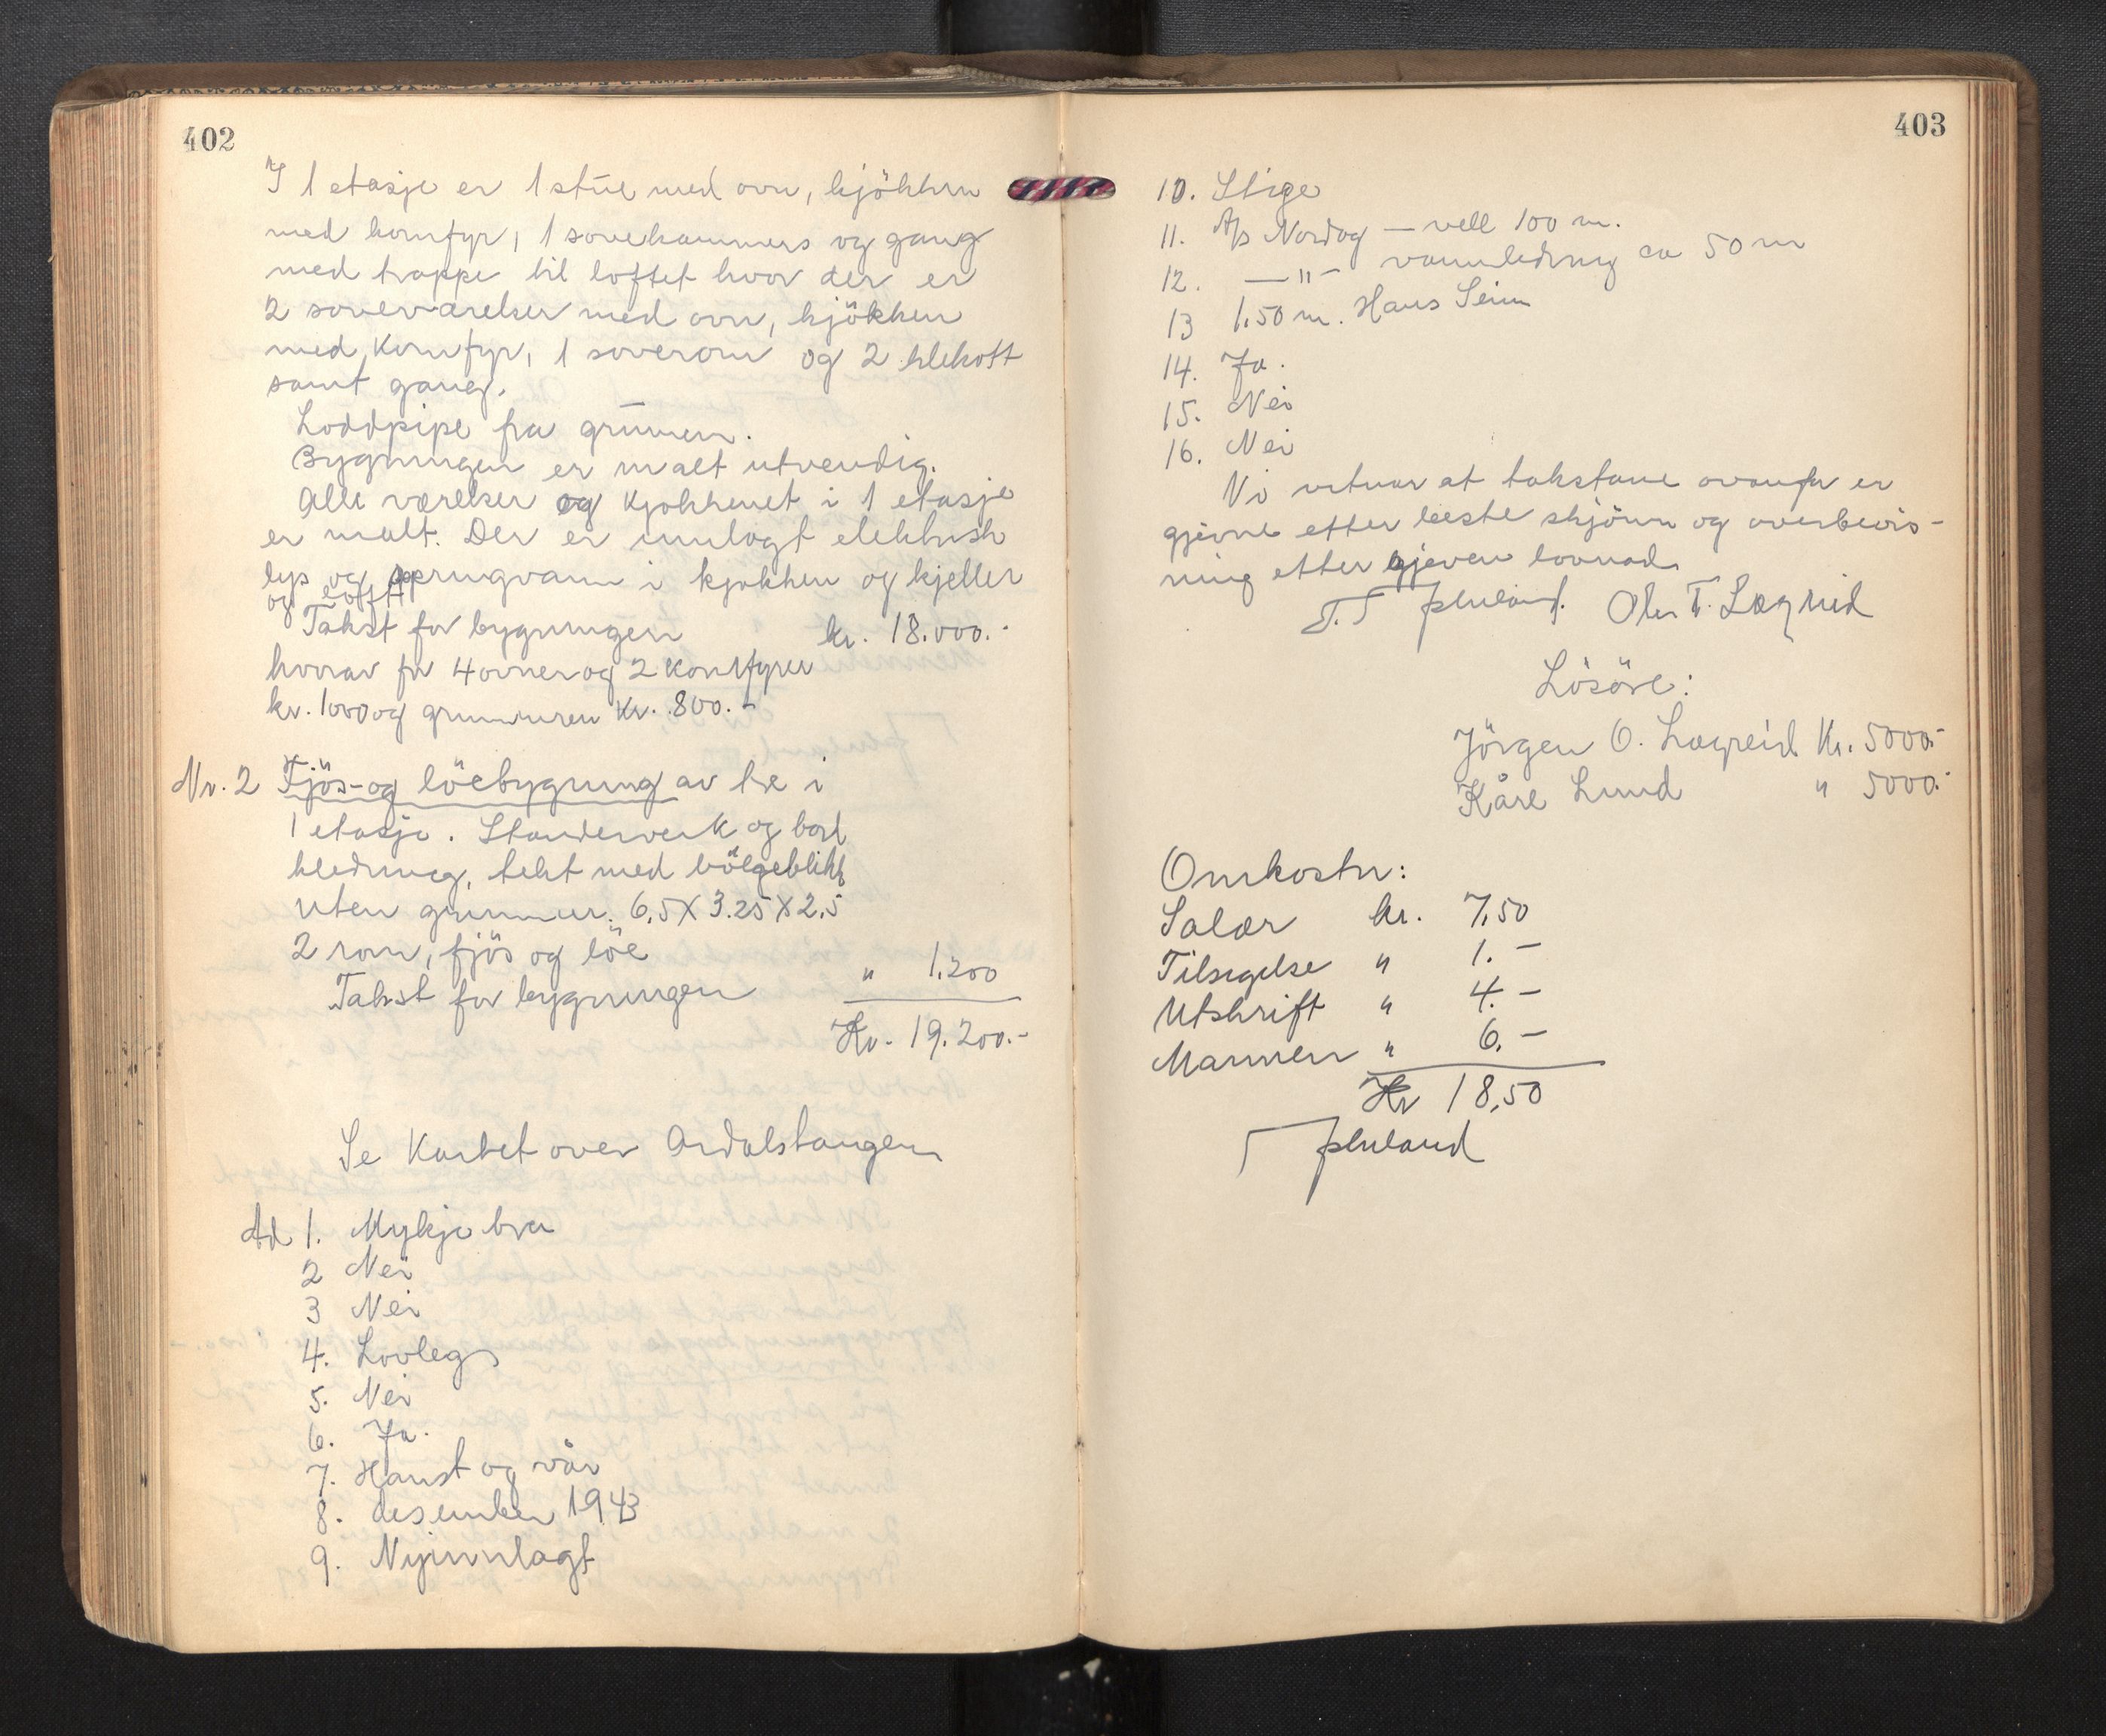 402
I 1 etasje er 1 stue med ovn, kjökken
med komfyr, 1 sovekammers og gang
med trappe til loftet hvor der er
2 soveværelser med ovn, kjökken
med komfyr, 1 soverom og 2 klekott
samt gang.
Loddpipe fra grunnen.
Bygningen er malt utvendig.
Alle værelser og kjøkkenet i 1 etasje
er malt. Der er innlagt elektrisk
lys og springvann i kjøkken og kjeller
og loft
Takst for bygningen kr. 18.000.-
hvorav for 4 ovner og 2 komfyrer
kr. 1000 og grunnmuren kr. 800.-
Nr. 2 Fjös- og löebygning av tre i
1 etasje. Standerverk og bord
kledning, tekt med bölgeblikk
uten grunnmur. 6,5 X 3.25 X 2,5
2 rom, fjös og löe
Takst for bygningen " 1.200
Kr. 19.200.-
Se Kartet over Årdalstangen
Ad 1. Mykje bra
2 Nei
3 Nei
4. Lovleg
5. Nei
6. Ja.
7. Haust og vår
8. desember 1943
9. Nyinnlagt
403
10. Stige
11. A/s Nordag – vell 100 m.
12. — " — vannledning ca 50 m
13 1.50 m. Hans Seim
14. Ja.
15. Nei
16. Nei
Vi vitnar at takstane ovanfor er
gjevne etter beste skjönn og overbevis-
ning etter gjeven lovnad.
Ole T. Lægreid
Lösöre:
Jörgen O. Lægreid Kr. 5000.-
Kåre Lund " 5000.-
Omkostn:
Salær kr. 7,50
Tilsigelse " 1.–
Utskrift " 4.–
Mannen " 6.–
Kr 18,50